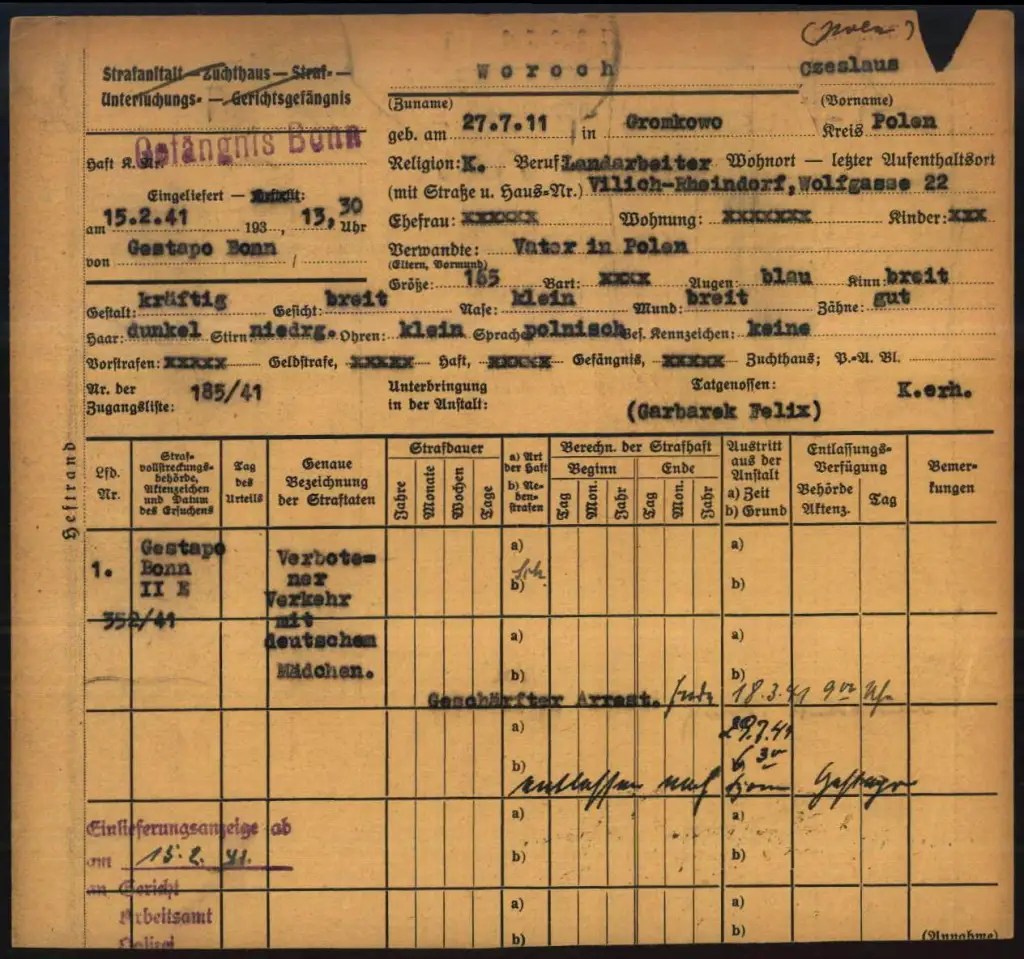 (Polen)
Strafanstalt — Zuchthaus — Straf- —
Untersuchungs- — Gerichtsgefängnis
Woroch Czeslaus
(Zuname) (Vorname)
geb. am 27.7.11 in Gromkowo Kreis Polen
Gefängnis Bonn
Haft K. Nr.
Religion: K. Beruf Landarbeiter Wohnort — letzter Aufenthaltsort
(mit Straße u. Haus-Nr.) Vilich-Rheindorf, Wolfgasse 22
Eingeliefert —
am 15.2.41 193 , 13,30 Uhr
von Gestapo Bonn /
Ehefrau: xxxxxx Wohnung: xxxxxxx Kinder: xxx
Verwandte: Vater in Polen
(Eltern, Vormund)
Größe: 165 Bart: xxxx Augen: blau Kinn: breit
Gestalt: kräftig Gesicht: breit Nase: klein Mund: breit Zähne: gut
Haar: dunkel Stirn niedrg. Ohren: klein Sprache polnisch Bes. Kennzeichen: keine
Vorstrafen: xxxxx Geldstrafe, xxxxx Haft, xxxxx Gefängnis, xxxxx Zuchthaus; P.-A. Bl.
Nr. der
Zugangsliste: 185/41
Unterbringung
in der Anstalt:
Tatgenossen:
(Garbarek Felix)
K.erh.
Heftrand
Lfd.
Nr.
Straf-
vollstreckungs-
behörde,
Aktenzeichen
und Datum
des Ersuchens
Tag
des
Urteils
Genaue
Bezeichnung
der Straftaten
Strafdauer
Jahre Monate Wochen Tage
a) Art
der Haft
b) Ne-
ben-
strafen
Berechn. der Strafhaft
Beginn Ende
Tag Mon. Jahr Tag Mon. Jahr
Austritt
aus der
Anstalt
a) Zeit
b) Grund
Entlassungs-
Verfügung
Behörde
Aktenz.
Tag
Bemer-
kungen
1.
Gestapo
Bonn
II E
352/41
Verbote=
ner
Verkehr
mit
deutschem
Mädchen.
a) a)
b) b)
a) a)
b) b)
Geschärfter Arrest. Ende 18.3.41 9 00 Uhr
a) 29.7.41
b) 6 30
entlassen nach Gestapo
a) a)
b) b)
Einlieferungsanzeige ab
am 15.2.41.
an Gericht
Arbeitsamt
Polizei
a) a)
b) b)
(Annahme)